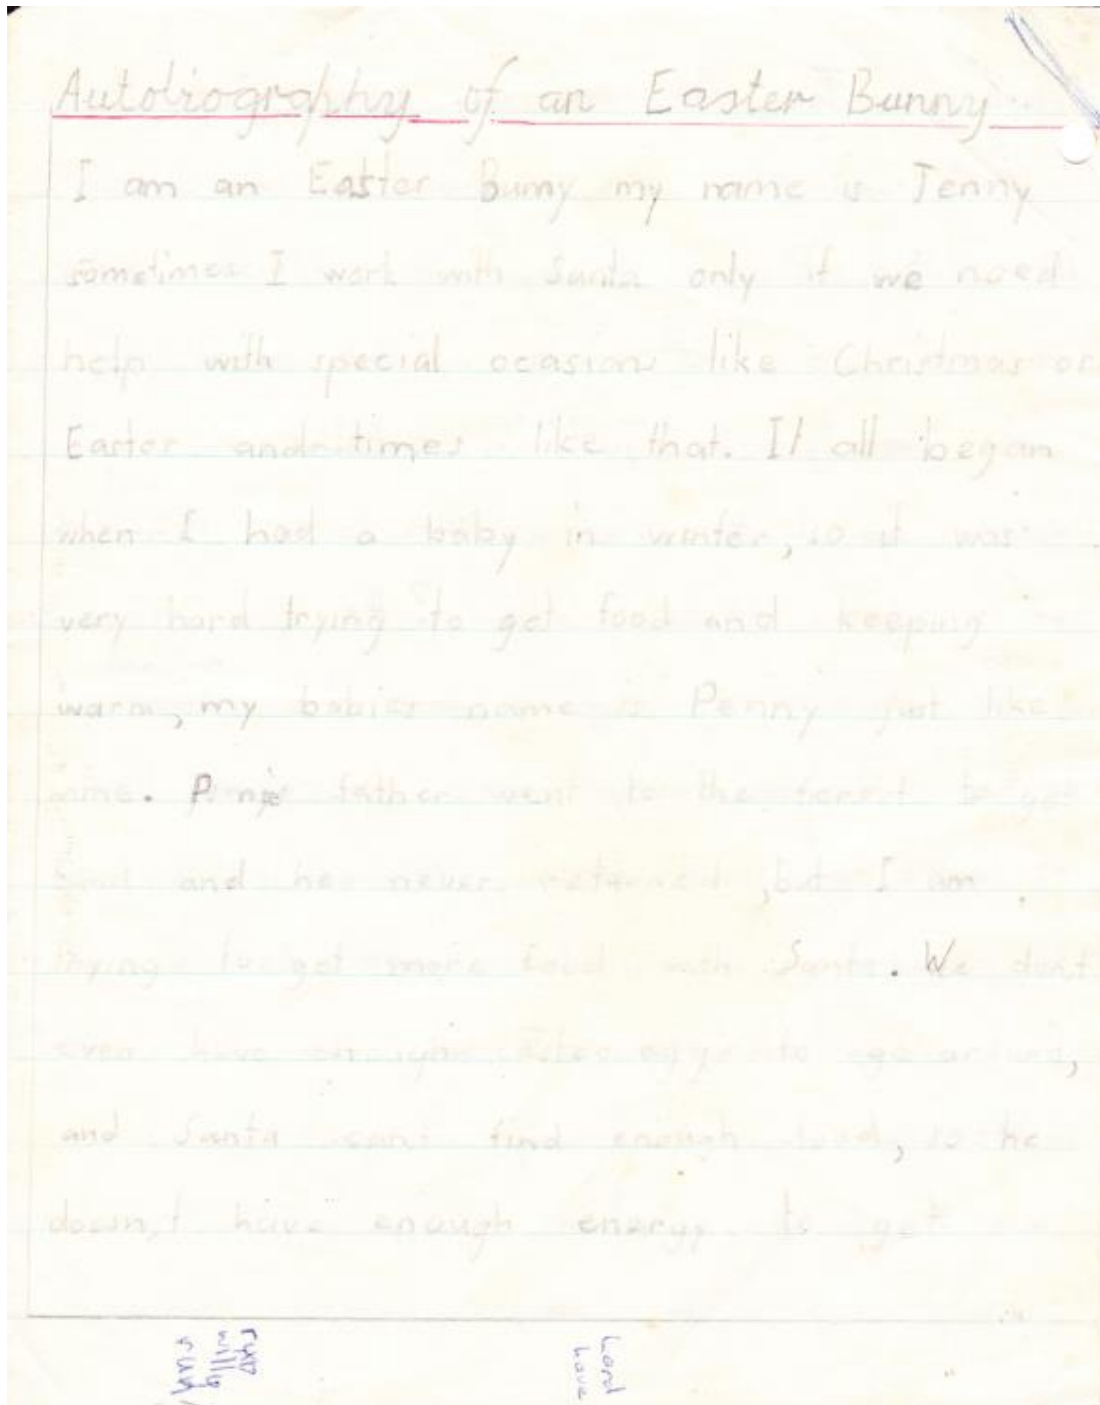 Autobiography of an Easter Bunny
I am an Easter Bunny my name is Jenny
sometimes I work with Santa only if we need
help with special ocasions like Christmas or
Easter and times like that. It all began
when I had a baby in winter, so it was
very hard trying to get food and keeping
warm, my babies name is Penny just like
mine. father went to the forest to get
food and he never returned, but I am
trying to get more food with Santa. We dont
even have enough easter eggs to go around,
and Santa cant find enough food, so he
doesn,t have enough energy to get
hard
have